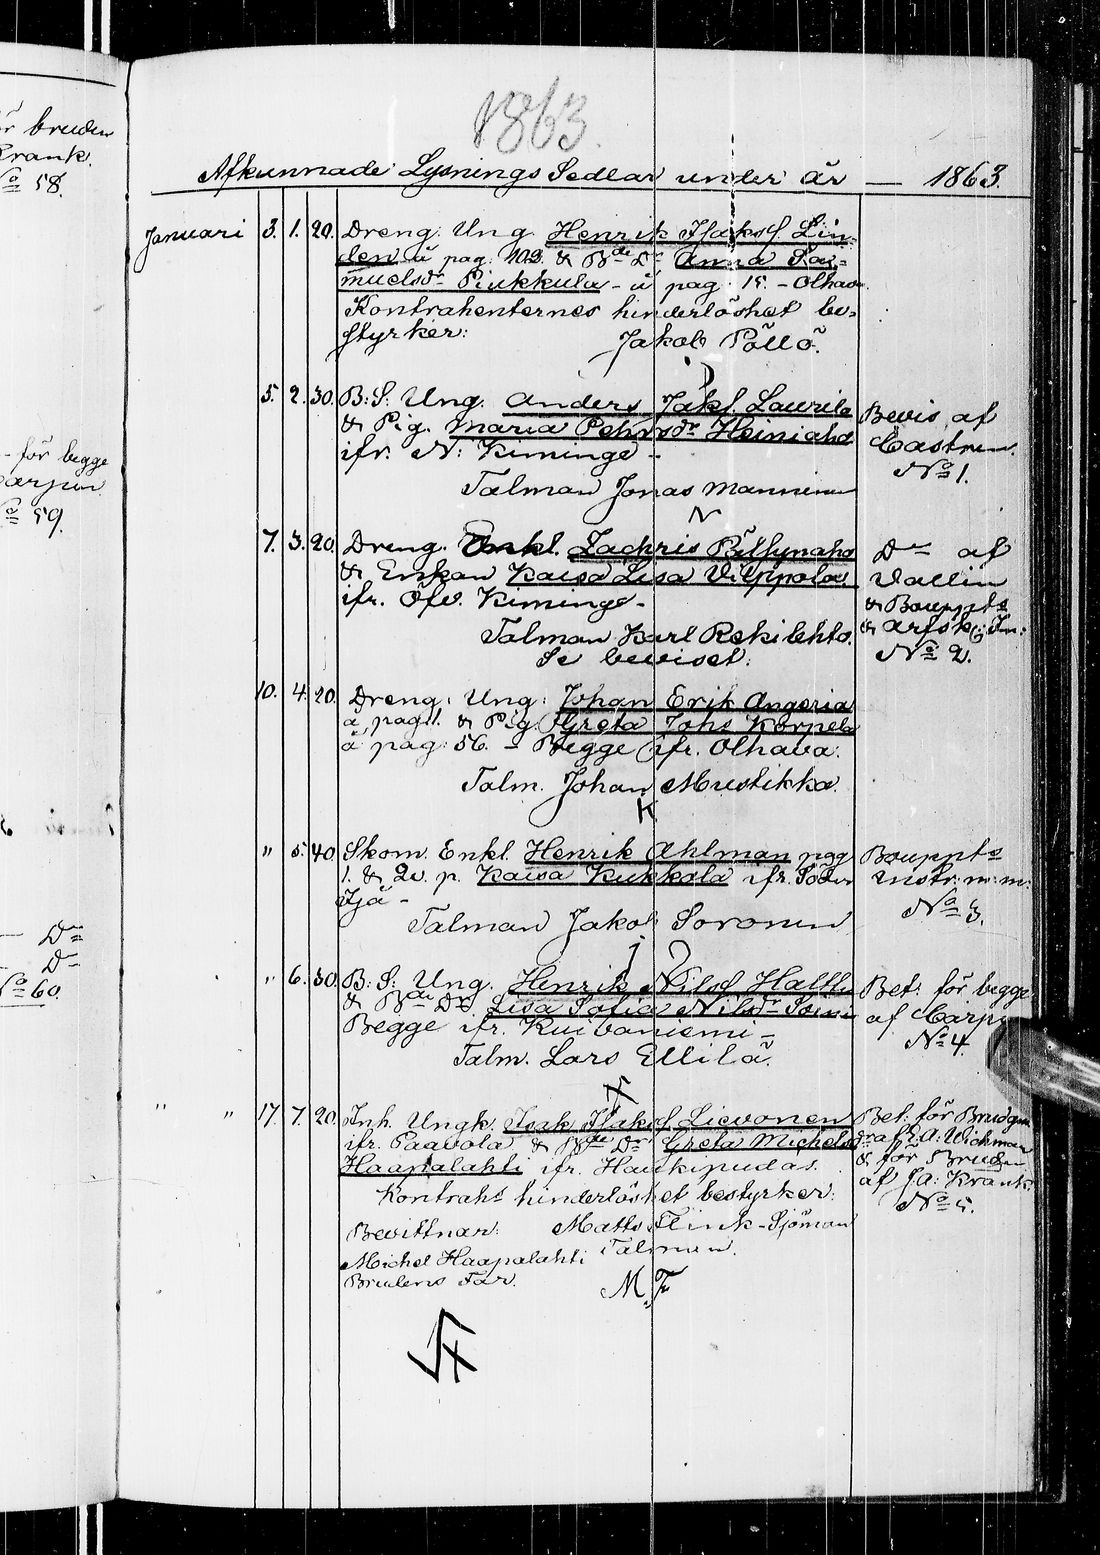 1863.
Afkunnade Lysnings Sedlar under år — 1863.
Januari 3. 1. 20. Dreng. Ung. Henrik Isaksf. Lin-
den å pag. 102 & Bde Dr Anna Sa-
muelsdr Piukkula - å pag. 15. - Olhava
Kontrahenternes hinderlöshet be-
styrker:
Jakob Pöllö.
5. 2. 30. B: S: Ung. Anders Jakf. Laurila
& Pig. Maria Pehrsdr Heiniaho
ifr. N: Kiminge -
Talman Jonas Manninen
Bevis af
Castren.
No 1.
7. 3. 20. Dreng. Enkl. Zachris Pältsynaho
& Enkan Kaisa Lisa Vilppola
ifr. Öfv. Kiminge -
Talman Karl Rekilehto.
Se beviset.
Do af
Vallin
& Bouppts
& Arfsk: In:
No 2.
10. 4. 20. Dreng: Ung: Johan Erik Angeria
å pag 1. & Pig. Greta Johs Korpela
å pag: 56. - Begge ifr. Olhava.
Talm. Johan Mustikka.
K
" 5. 40. Skom. Enkl. Henrik Ahlman pag
1. & Qv. p. Kaisa Kukkola ifr. Söder
Ijä -
Talman Jakob Soronen
Bouppts
instr: m: m:
No 3.
" 6. 30. B: S: Ung. Henrik Nilsf Halttu
& Bde Dr. Lisa Sofia Nilsdr Sorri
Begge ifr. Kuivaniemi -
Talm. Lars Ellilä.
Bet: för begge
af Carp
No 4.
" " 17. 7. 20. Inh. Ungk. Isak Isaksf Lievonen
ifr. Paavola & Bde Dr Greta Michelsdr
Haapalahti ifr. Haukipudas.
Kontrahs hinderlöshet bestyrker:
Bevittnar: Matts Flink - Sjöman
Michel Haapalahti Talman.
Brudens Far. M. F
Bet: för Brudgum
af E. A: Wichman
& för Bruden
af J. A: Krank.
No 5.
är bruden
Krank.
No 58.
- för begge
No 59.
— Do
— Do
No 60.